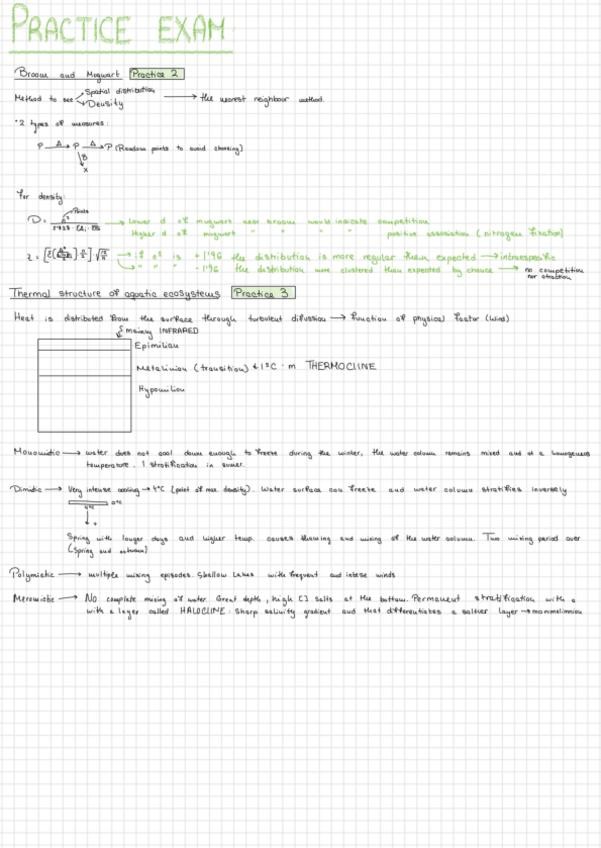 PRACTICE EXAM
Broom and Mugwart Practice 2
Method to see Spatial distribution
Density → the nearest neighbour method.
·2 types of measures:
P → P → P (Random points to avoid choosing)
B
x
For density:
D = → Lower d of mugwart near broom would indicate competition
Higher d of mugwart " " " positive association (nitrogen fixation)
→ if z is + 1'96 the distribution is more regular than expected → intraespecific
" " " - 1'96 the distribution more clustered than expected by chance → no competition
nor atraction
Thermal structure of aquatic ecosystems Practice 3
Heat is distributed from the surface through turbulent difussion → function of physical factor (wind)
mainly INFRARED
Epimilion
Metalimion (transition) 1°C · m THERMOCLINE
Hypomilion
Monomictic → water does not cool down enough to freeze during the winter, the water column remains mixed and at a homogenous
temperature. 1 stratification in sumer.
Dimictic → Very intense cooling → 4°C (point of max. density). Water surface can freeze and water column stratifies inversely
0°C
4°C
Spring with longer days and higher temp. causes thawing and mixing of the water column. Two mixing period over
(Spring and autumn)
Polymictic → multiple mixing episodes. Shallow lakes with frequent and intese winds
Meromictic → No complete mixing of water. Great depth, high [] salts at the bottom. Permanent stratification with a
with a layer called HALOCLINE: sharp salinity gradient and that differentiates a saltier layer → monimolimnion